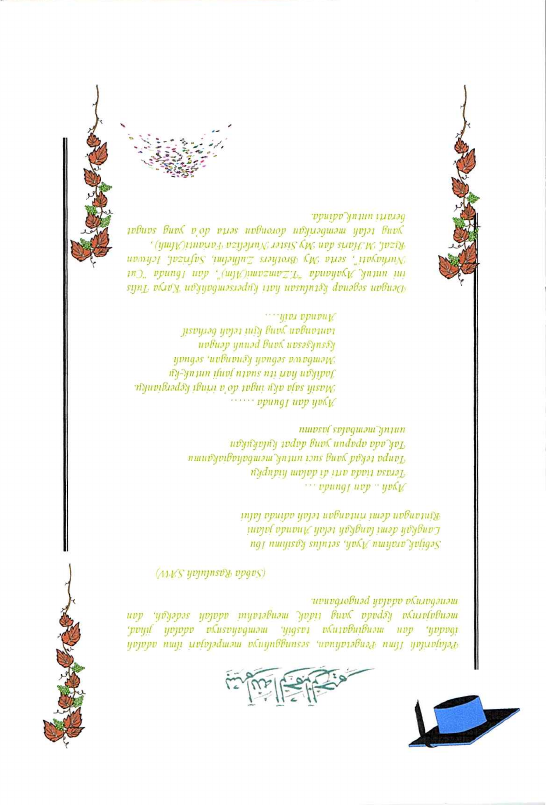 بسم الله الرحمن الرحيم
Pelajarilah Ilmu Pengetahuan, sesungguhnya mempelajari ilmu adalah
ibadah, dan mengingatnya tasbih, membahasnya adalah jihad,
mengajarnya kepada yang tidak mengetahui adalah sedekah, dan
menebarnya adalah pengorbanan.
(Sabda Rasulullah SAW)
Sebijak arahmu Ayah, setulus kasihmu Ibu
Langkah demi langkah telah Ananda jalani
Rintangan demi rintangan telah adinda lalui
Ayah .. dan Ibunda ...
Terasa tiada arti di dalam hidupku
Tanpa tekad yang suci untuk membahagiakanmu
Tak ada apapun yang dapat kulakukan
untuk membalas jasamu
Ayah dan Ibunda ......
Masih saja aku ingat do'a iringi kepergianku,
Jadikan hari itu suatu janji untuk-ku
Membawa sebuah kenangan, sebuah
kesuksesan yang penuh dengan
tantangan yang kini telah berhasil
Ananda raih....
Dengan segenap ketulusan hati kupersembahkan Karya Tulis
ini untuk, Ayahanda "T.Zamzami(Alm)" dan Ibunda "Cut
Nurhayati", serta My Brothers Zulhelmi, Safrizal, Ichwan
Rizal, M.Haris dan My Sister Nurleliza Fananti(Almh),
yang telah memberikan dorongan serta do'a yang sangat
berarti untuk adinda.